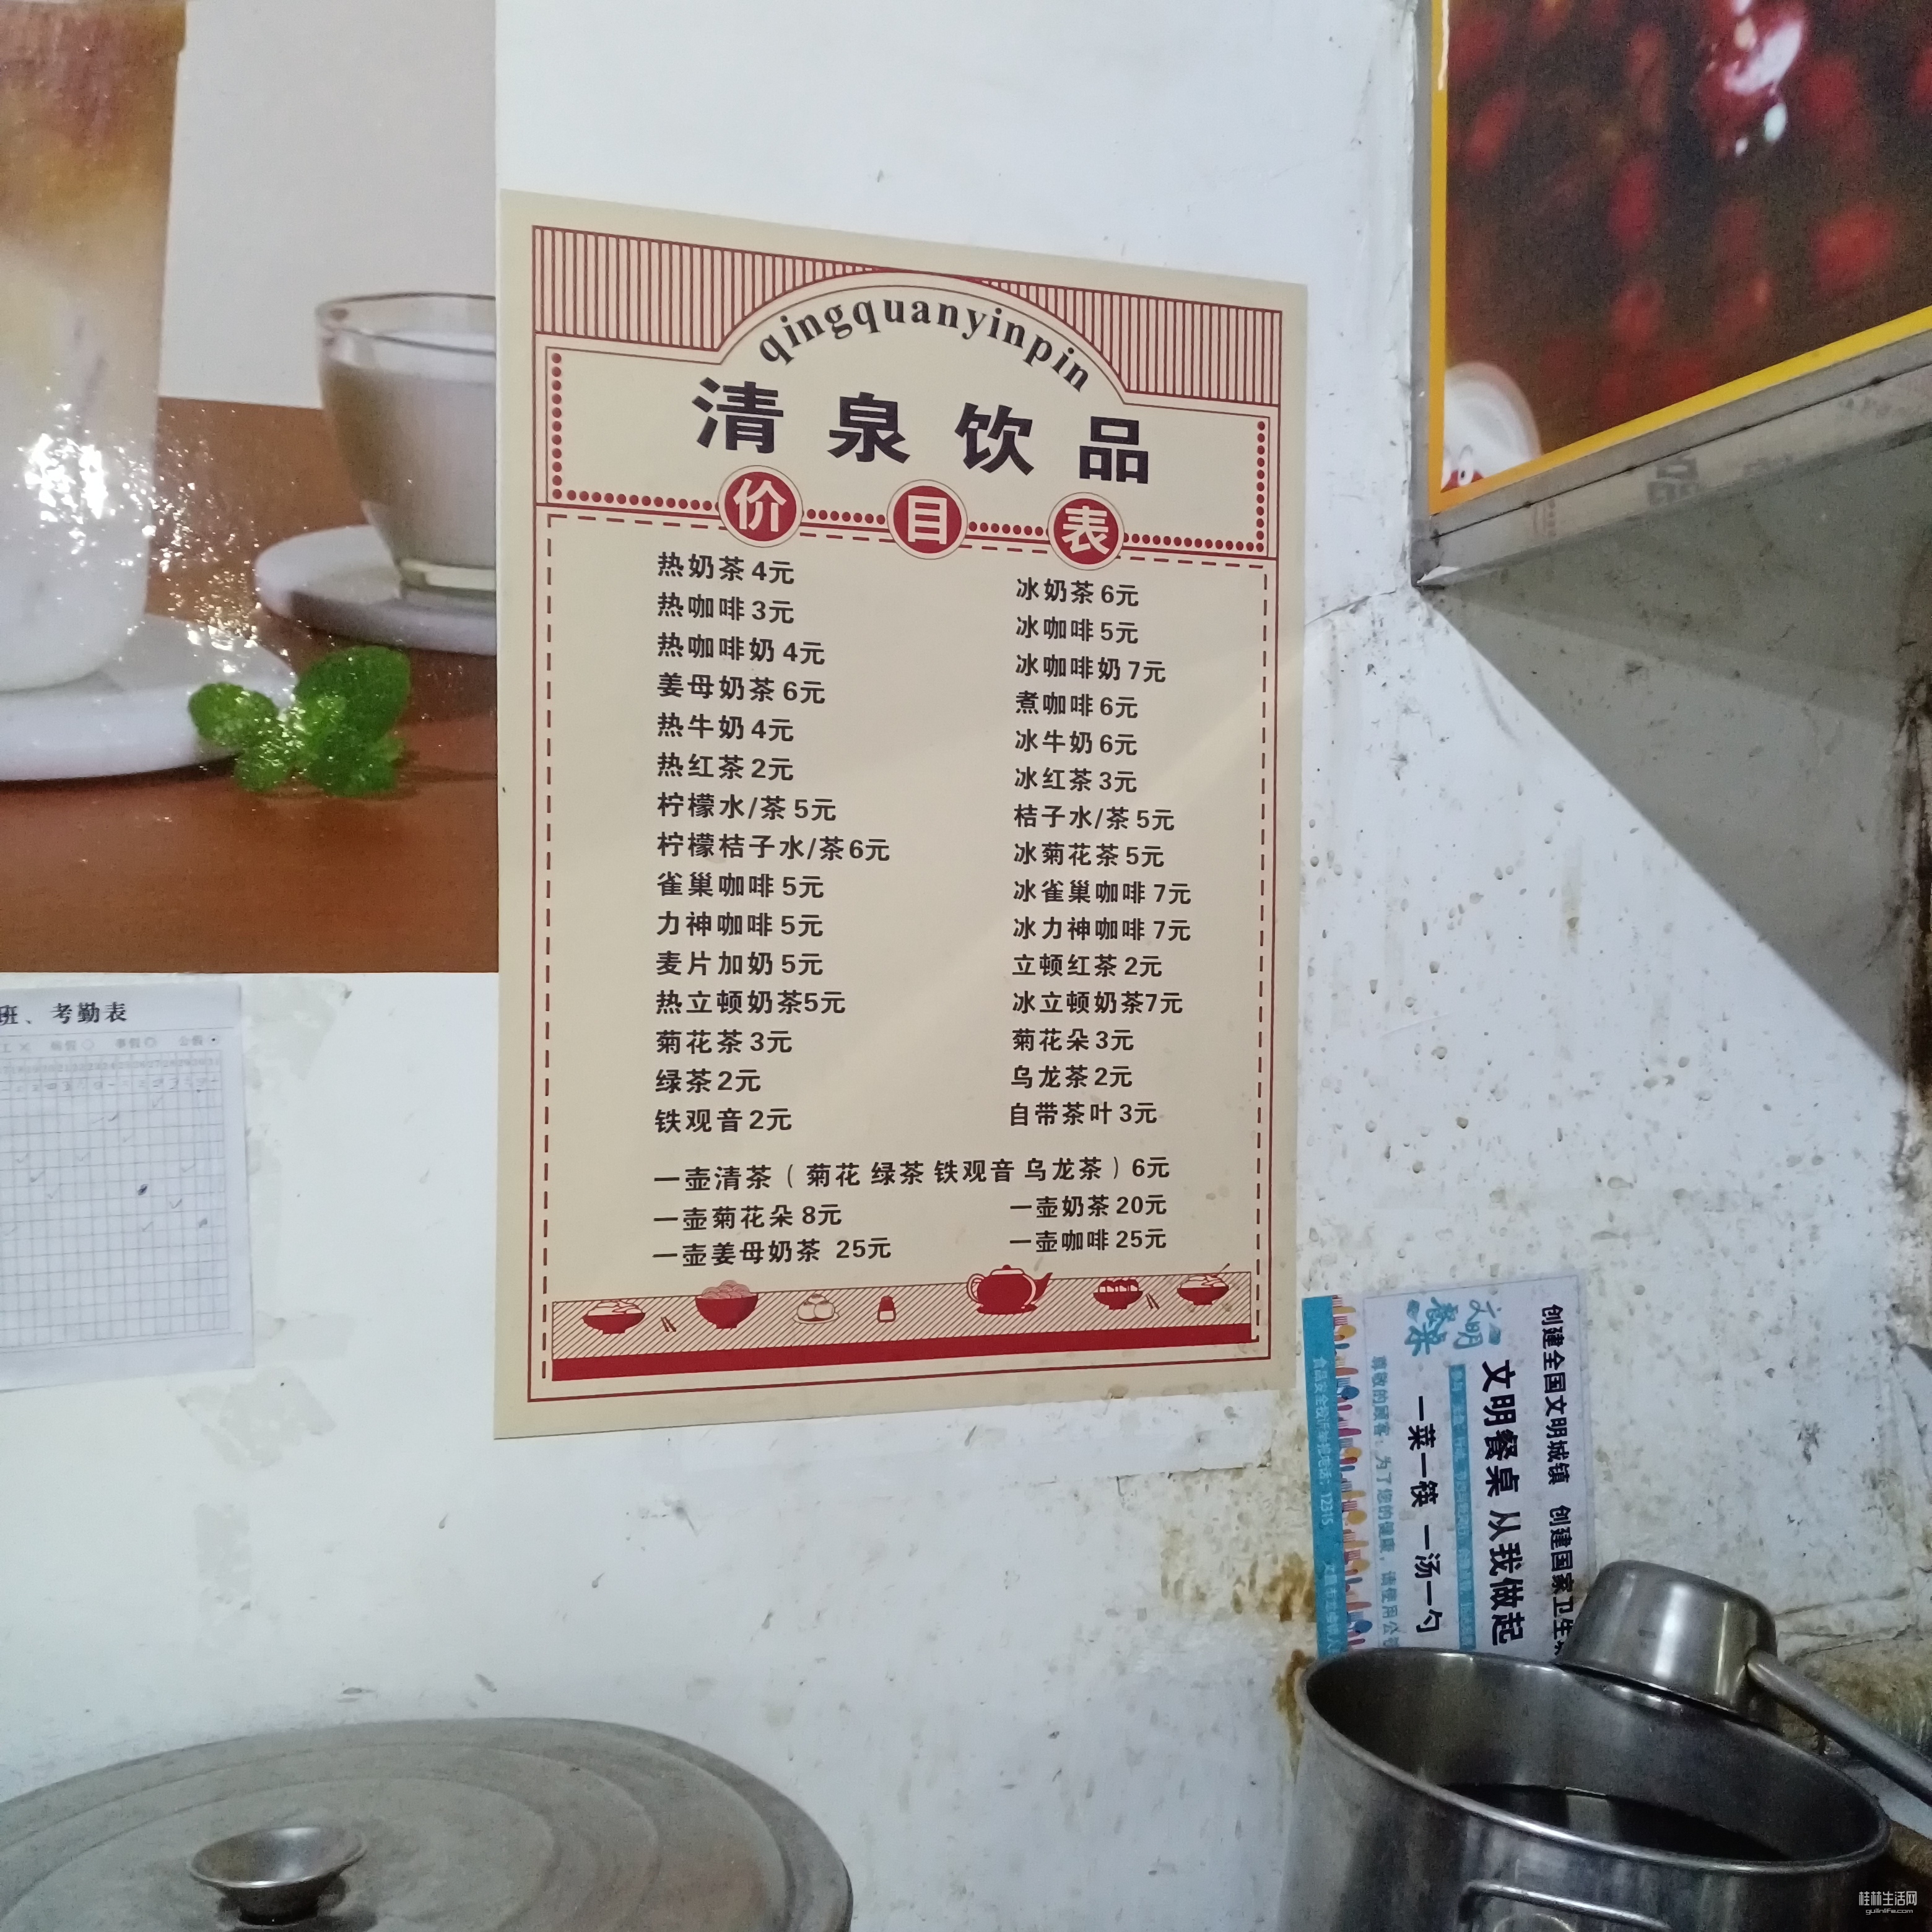 qingquanyinpin
清泉饮品
价目表
热奶茶 4元
热咖啡 3元
热咖啡奶 4元
姜母奶茶 6元
热牛奶 4元
热红茶 2元
柠檬水/茶 5元
柠檬桔子水/茶 6元
雀巢咖啡 5元
力神咖啡 5元
麦片加奶 5元
热立顿奶茶5元
菊花茶 3元
绿茶 2元
铁观音 2元
冰奶茶 6元
冰咖啡 5元
冰咖啡奶 7元
煮咖啡 6元
冰牛奶 6元
冰红茶 3元
桔子水/茶 5元
冰菊花茶 5元
冰雀巢咖啡 7元
冰力神咖啡 7元
立顿红茶 2元
冰立顿奶茶7元
菊花朵 3元
乌龙茶 2元
自带茶叶 3元
一壶清茶（菊花 绿茶 铁观音 乌龙茶）6元
一壶菊花朵 8元
一壶奶茶 20元
一壶姜母奶茶 25元
一壶咖啡 25元
班、考勤表
创建全国文明城镇 创建国家卫生
文明餐桌 从我做起
一菜一筷 一汤一勺
文明餐桌
尊敬的顾客：为了您的健康，请使用公
食品安全投诉举报电话：12315
桂林生活网
guilinlife.com